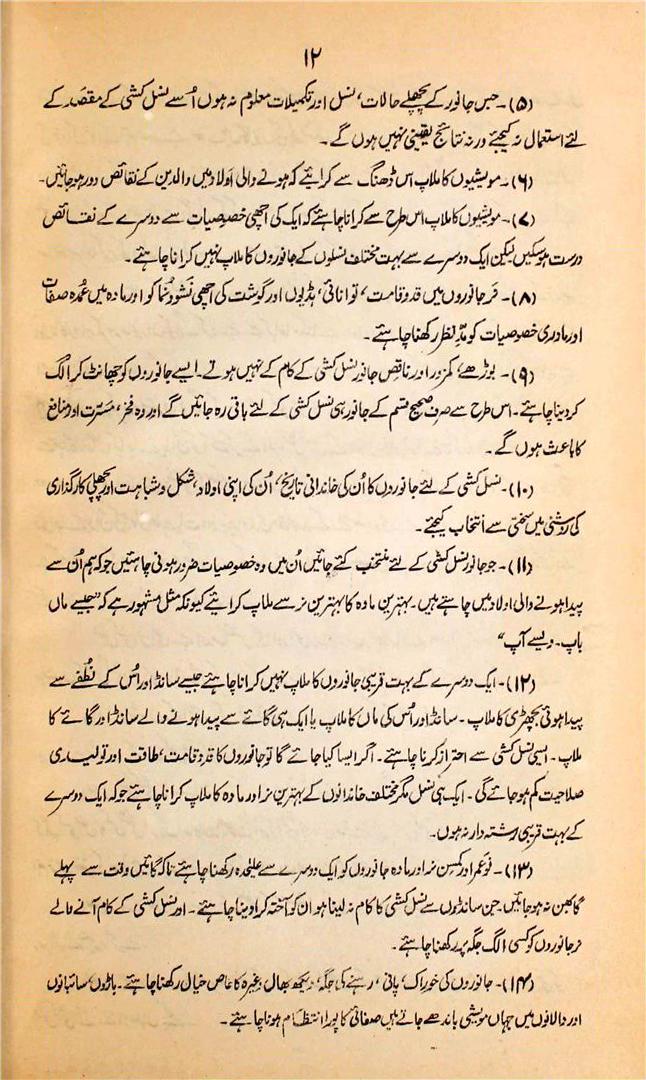 ۱۲
(۵)۔ جس جانور کے پچھلے حالات، نسل اور تکمیلات معلوم نہ ہوں اُسے نسل کشی کے مقصد کے
لئے استعمال نہ کیجئے ورنہ نتائج یقینی نہیں ہوں گے۔
(۶)۔ مویشیوں کا ملاپ اس ڈھنگ سے کرائیے کہ ہونے والی اولاد میں والدین کے نقائص دور ہو جائیں۔
(۷)۔ مویشیوں کا ملاپ اس طرح سے کرانا چاہئے کہ ایک کی اچھی خصوصیات سے دوسرے کے نقائص
درست ہو سکیں لیکن ایک دوسرے سے بہت مختلف نسلوں کے جانوروں کا ملاپ نہیں کرانا چاہئے۔
(۸)۔ نر جانوروں میں قدوقامت، توانائی، ہڈیوں اور گوشت کی اچھی نشوونما کو اور مادہ میں عمدہ صفات
اور مادری خصوصیات کو مدِّ نظر رکھنا چاہئے۔
(۹)۔ بوڑھے، کمزور اور ناقص جانور نسل کشی کے کام کے نہیں ہوتے۔ ایسے جانوروں کو چھانٹ کر الگ
کر دینا چاہئے۔ اس طرح سے صرف صحیح قسم کے جانور ہی نسل کشی کے لئے باقی رہ جائیں گے اور وہ فخر، مسرت اور منافع
کا باعث ہوں گے۔
(۱۰)۔ نسل کشی کے لئے جانوروں کا اُن کی خاندانی تاریخ، اُن کی اپنی اولاد، شکل و شباہت اور پچھلی کارگذاری
کی روشنی میں سختی سے انتخاب کیجئے۔
(۱۱)۔ جو جانور نسل کشی کے لئے منتخب کئے جائیں اُن میں وہ خصوصیات ضرور ہونی چاہئیں جو کہ ہم اُن سے
پیدا ہونے والی اولاد میں چاہتے ہیں۔ بہترین مادہ کا بہترین نر سے ملاپ کرائیے کیونکہ مثل مشہور ہے کہ ”جیسے ماں
باپ۔ ویسے آپ“
(۱۲)۔ ایک دوسرے کے بہت قریبی جانوروں کا ملاپ نہیں کرانا چاہئے جیسے سانڈ اور اُس کے نطفے سے
پیدا ہوئی بچھڑی کا ملاپ۔ سانڈ اور اُس کی ماں کا ملاپ یا ایک ہی گائے سے پیدا ہونے والے سانڈ اور گائے کا
ملاپ۔ ایسی نسل کشی سے احتراز کرنا چاہئے۔ اگر ایسا کیا جائے گا تو جانوروں کا قدوقامت، طاقت اور تولیدی
صلاحیت کم ہو جائے گی۔ ایک ہی نسل مگر مختلف خاندانوں کے بہترین نر اور مادہ کا ملاپ کرانا چاہئے جو کہ ایک دوسرے
کے بہت قریبی رشتہ دار نہ ہوں۔
(۱۳)۔ نوعمر اور کمسن نر اور مادہ جانوروں کو ایک دوسرے سے علیٰحدہ رکھنا چاہئے تاکہ گائیں وقت سے پہلے
گابھن نہ ہو جائیں۔ جن سانڈوں سے نسل کشی کا کام نہ لینا ہو ان کو آختہ کرا دینا چاہئے۔ اور نسل کشی کے کام آنے والے
نر جانوروں کو کسی الگ جگہ پر رکھنا چاہئے۔
(۱۴)۔ جانوروں کی خوراک، پانی، رہنے کی جگہ، دیکھ بھال وغیرہ کا خاص خیال رکھنا چاہئے۔ باڑوں، سائبانوں
اور دالانوں میں جہاں مویشی باندھے جاتے ہیں صفائی کا پورا انتظام ہونا چاہئے۔